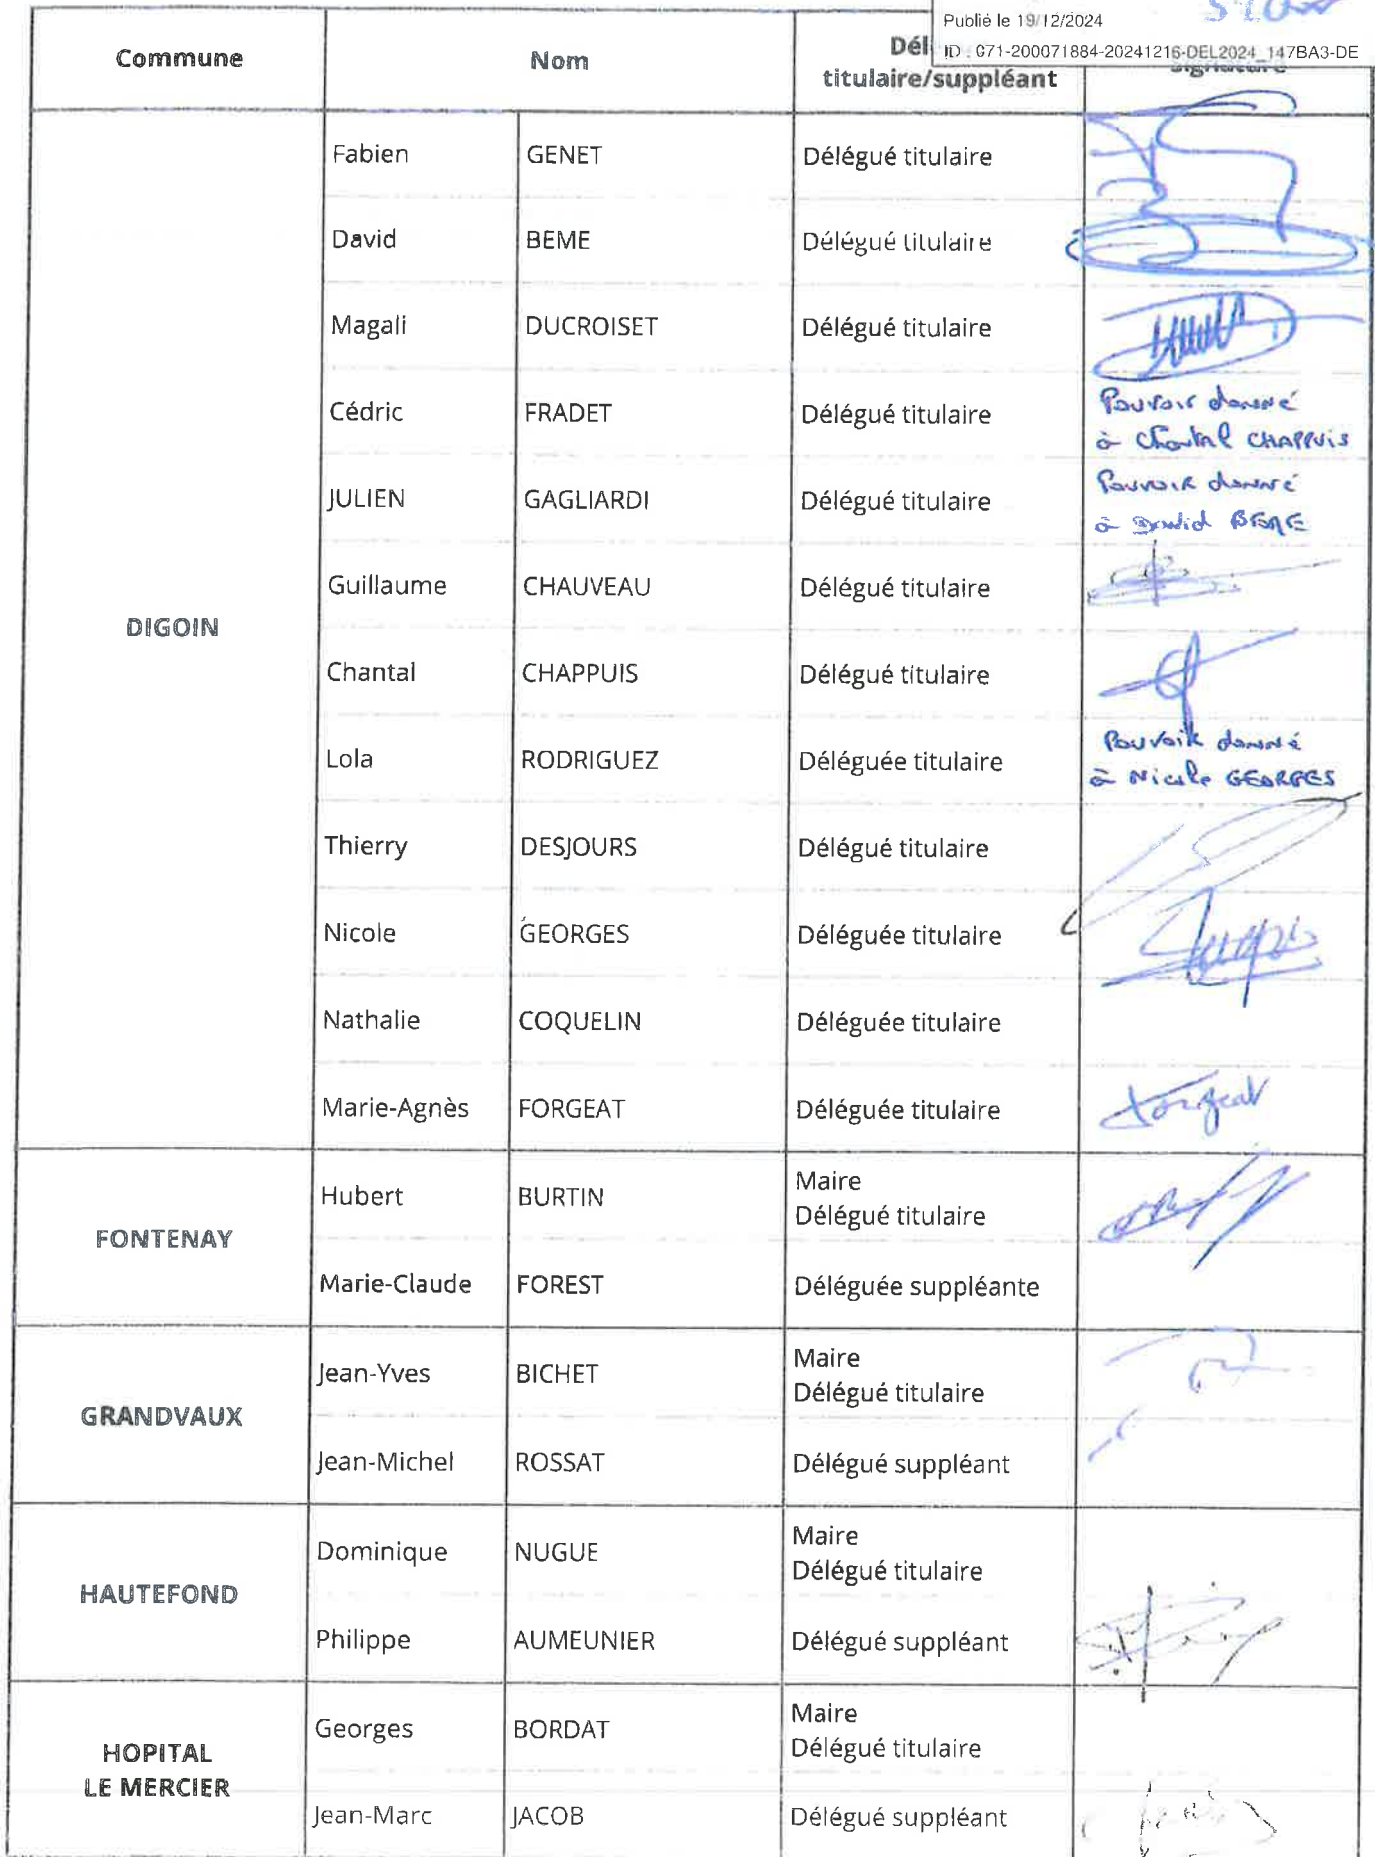 Publié le 19/12/2024
ID : 071-200071884-20241216-DEL2024_147BA3-DE
Commune Nom titulaire/suppléant Signature
Fabien GENET Délégué titulaire
David BEME Délégué titulaire
Magali DUCROISET Délégué titulaire
Cédric FRADET Délégué titulaire Pouvoir donné
à Chantal CHAPPUIS
JULIEN GAGLIARDI Délégué titulaire Pouvoir donné
à David BEME
Guillaume CHAUVEAU Délégué titulaire
DIGOIN
Chantal CHAPPUIS Délégué titulaire
Lola RODRIGUEZ Déléguée titulaire Pouvoir donné
à Nicole GEORGES
Thierry DESJOURS Délégué titulaire
Nicole GEORGES Déléguée titulaire
Nathalie COQUELIN Déléguée titulaire
Marie-Agnès FORGEAT Déléguée titulaire Forgeat
FONTENAY
Hubert BURTIN Maire
Délégué titulaire
Marie-Claude FOREST Déléguée suppléante
GRANDVAUX
Jean-Yves BICHET Maire
Délégué titulaire
Jean-Michel ROSSAT Délégué suppléant
HAUTEFOND
Dominique NUGUE Maire
Délégué titulaire
Philippe AUMEUNIER Délégué suppléant
HOPITAL
LE MERCIER
Georges BORDAT Maire
Délégué titulaire
Jean-Marc JACOB Délégué suppléant